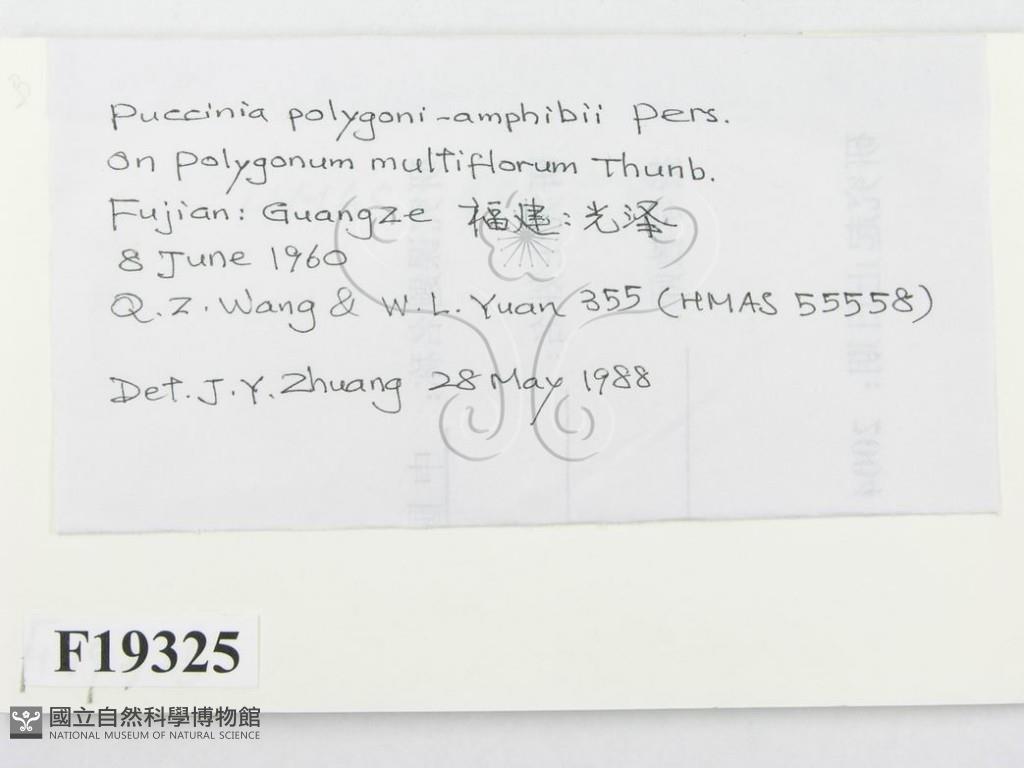 Puccinia polygoni-amphibii Pers.
on Polygonum multiflorum Thunb.
Fujian: Guangze 福建: 光泽
8 June 1960
Q.Z. Wang & W.L. Yuan 355 (HMAS 55558)
Det. J.Y. Zhuang 28 May 1988
F19325
國立自然科學博物館
NATIONAL MUSEUM OF NATURAL SCIENCE